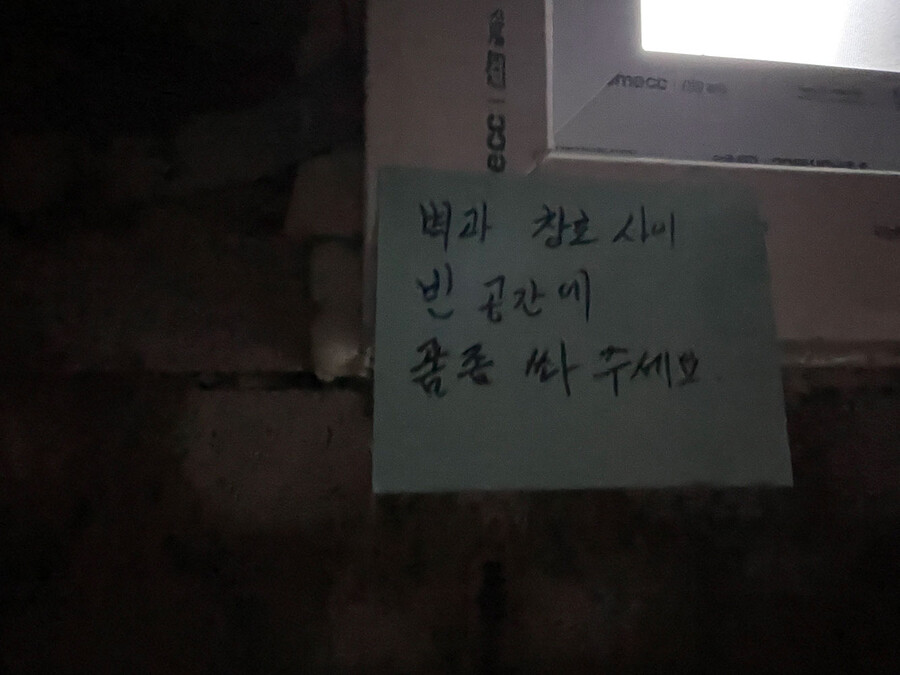 ecc
mecc
벽과 창호 사이
빈 공간에
폼좀 쏴 주세요.